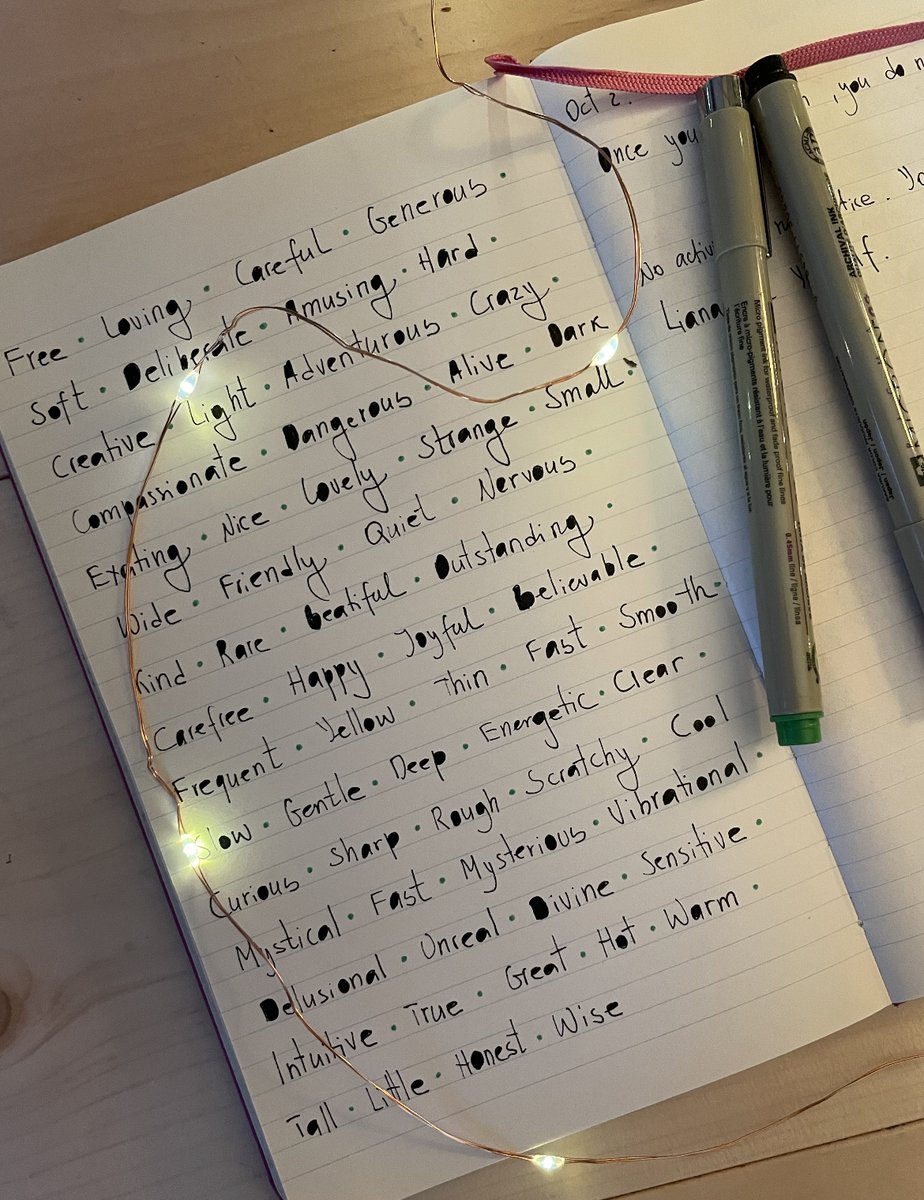 Free · Loving · Careful · Generous ·
Soft · Deliberate · Amusing · Hard ·
Creative · Light · Adventurous · Crazy ·
Compassionate · Dangerous · Alive · Dark
Exciting · Nice · Lovely · Strange · Small ·
Wide · Friendly · Quiet · Nervous ·
Kind · Rare · Beatiful · Outstanding ·
Carefree · Happy · Joyful · Believable ·
Frequent · Yellow · Thin · Fast · Smooth ·
Slow · Gentle · Deep · Energetic · Clear ·
Curious · Sharp · Rough · Scratchy · Cool
Mystical · Fast · Mysterious · Vibrational ·
Delusional · Unreal · Divine · Sensitive ·
Intuitive · True · Great · Hot · Warm ·
Tall · Little · Honest · Wise
Oct 2.
, you do
Once you
No
Liana
Micro pigment ink for waterproof and fade proof fine lines
Encre à micro-pigments résistant à l'eau et la lumière pour
l'écriture fine
0.45mm line / ligne / linea
ARCHIVAL INK
Japan / Japon